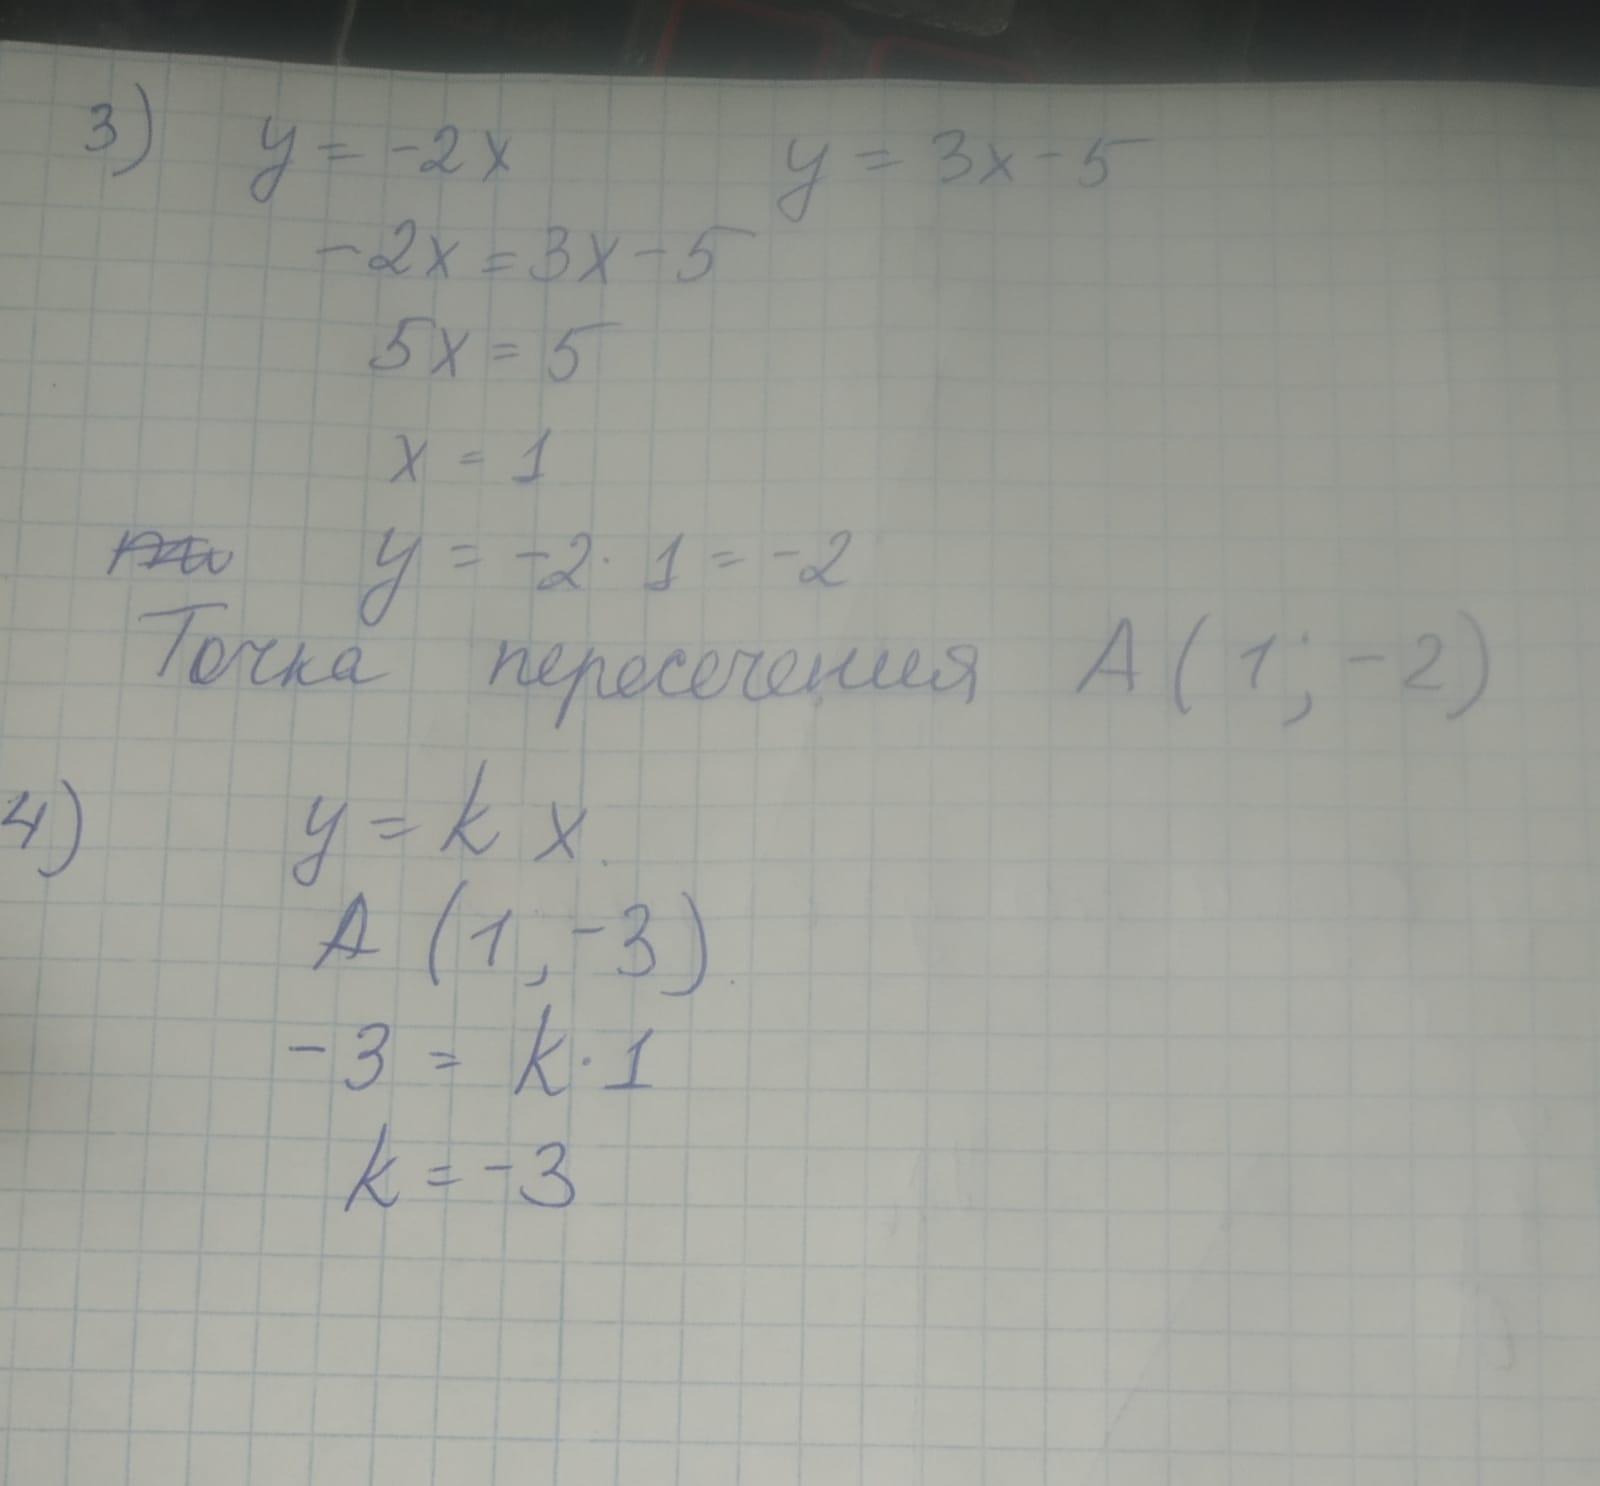 3) y = -2x y = 3x - 5
-2x = 3x - 5
5x = 5
x = 1
y = -2 · 1 = -2
Точка пересечения A (1; -2)
4) y = k x.
A (1; -3).
-3 = k · 1
k = -3